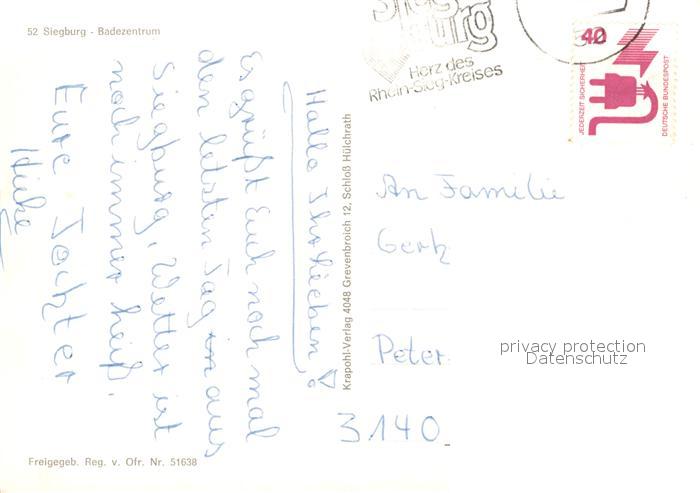 52 Siegburg - Badezentrum
Hallo Ihr Lieben!
Es grüßt Euch noch mal
den letzten Tag aus
Siegburg, Wetter ist
noch immer heiß.
Eure Tochter
Heike
Freigegeb. Reg. v. Ofr. Nr. 51638
Krapohl-Verlag 4048 Grevenbroich 12, Schloß Hülchrath
Siegburg
Herz des
Rhein-Sieg-Kreises
40
JEDERZEIT SICHERHEIT
DEUTSCHE BUNDESPOST
An Familie
Gertz
Peter
3140
privacy protection
Datenschutz